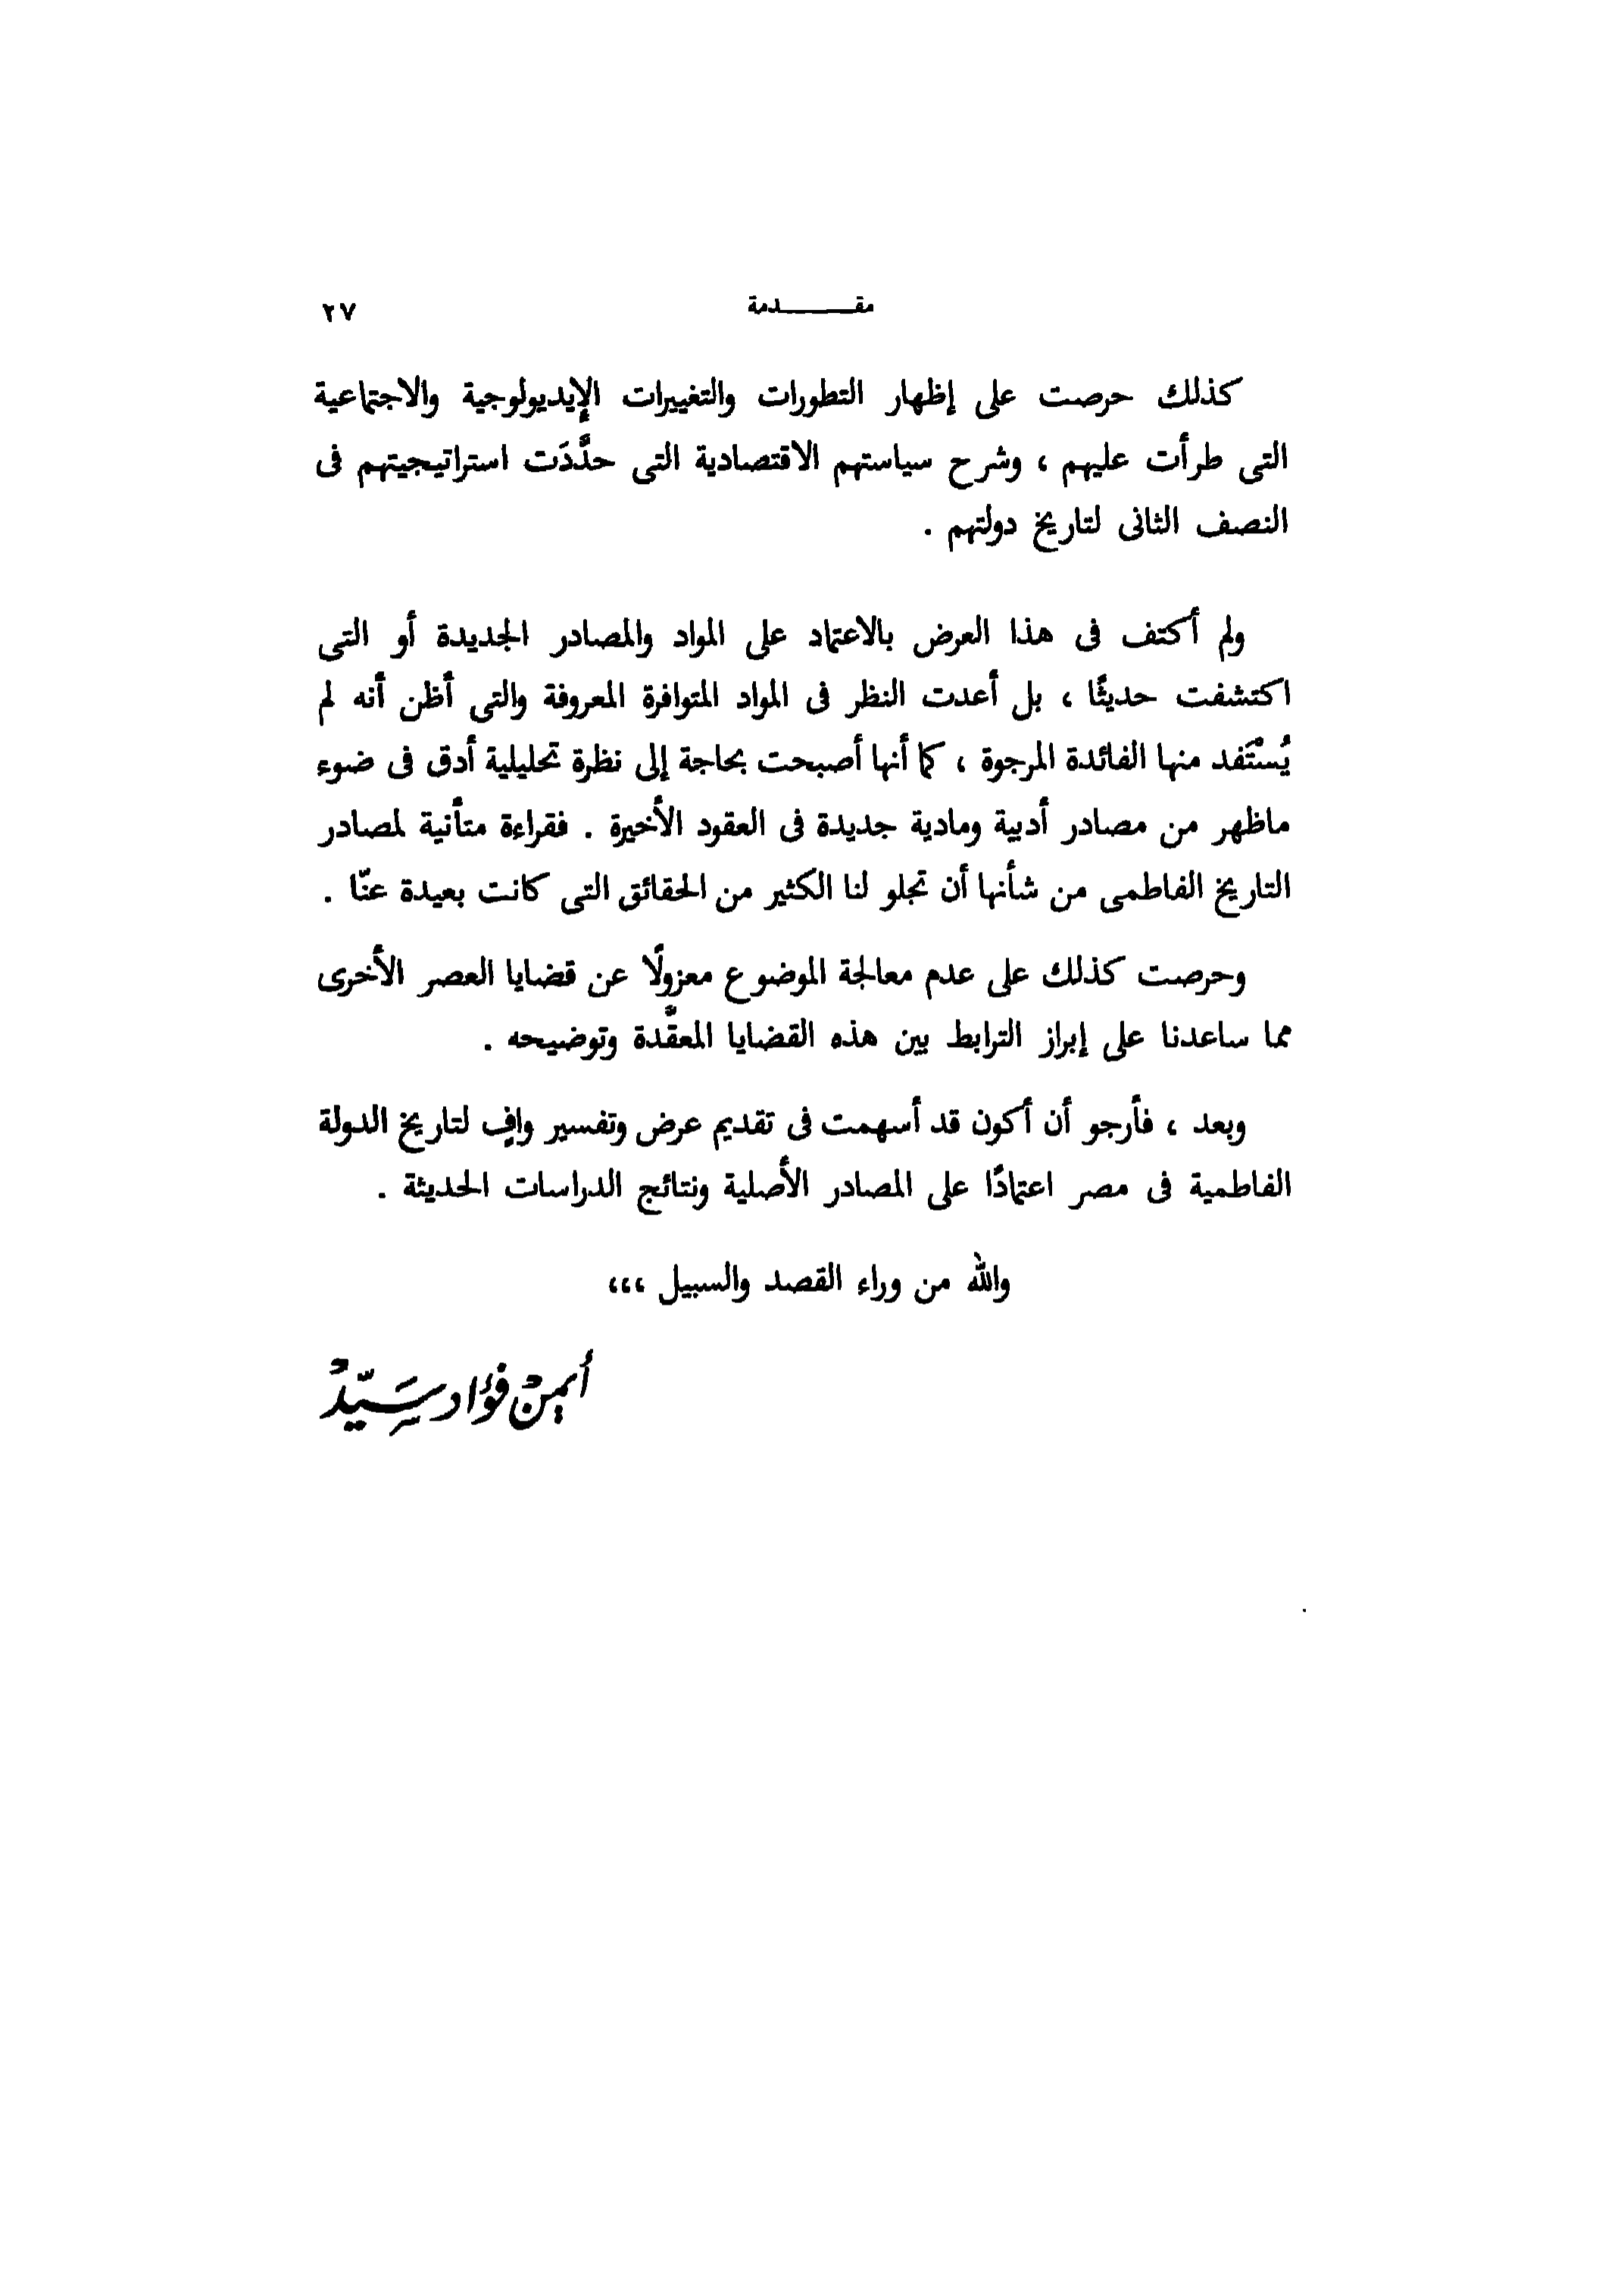 مقـــــــدمة
٢٧
كذلك حرصت على إظهار التطورات والتغييرات الإيديولوجية والاجتماعية
التى طرأت عليهم ، وشرح سياستهم الاقتصادية التى حدَّدَت استراتيجيتهم فى
النصف الثانى لتاريخ دولتهم .
ولم أكتف فى هذا العرض بالاعتماد على المواد والمصادر الجديدة أو التى
اكتشفت حديثًا ، بل أعدت النظر فى المواد المتوافرة المعروفة والتى أظن أنه لم
يُسْتَفد منها الفائدة المرجوة ، كما أنها أصبحت بحاجة إلى نظرة تحليلية أدق فى ضوء
ماظهر من مصادر أدبية ومادية جديدة فى العقود الأخيرة . فقراءة متأنية لمصادر
التاريخ الفاطمى من شأنها أن تجلو لنا الكثير من الحقائق التى كانت بعيدة عنّا .
وحرصت كذلك على عدم معالجة الموضوع معزولًا عن قضايا العصر الأخرى
مما ساعدنا على إبراز الترابط بين هذه القضايا المعقَّدة وتوضيحه .
وبعد ، فأرجو أن أكون قد أسهمت فى تقديم عرض وتفسير وافٍ لتاريخ الدولة
الفاطمية فى مصر اعتمادًا على المصادر الأصلية ونتائج الدراسات الحديثة .
والله من وراء القصد والسبيل ،،،
أيمنْ فؤاد سَيّدْ